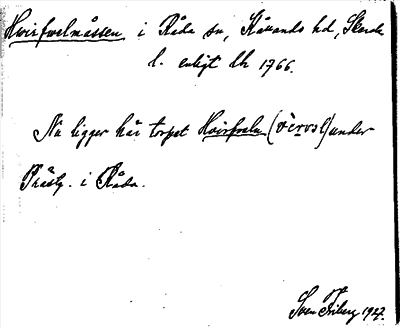 Hwirfwelmåssen i Råda sn, Kållands hd, Skarab.
l. enligt Lk 1766.
Nu ligger här torpet Hvirfveln (vərvəl) under
Prästg. i Råda.
Sven Friberg 1927.